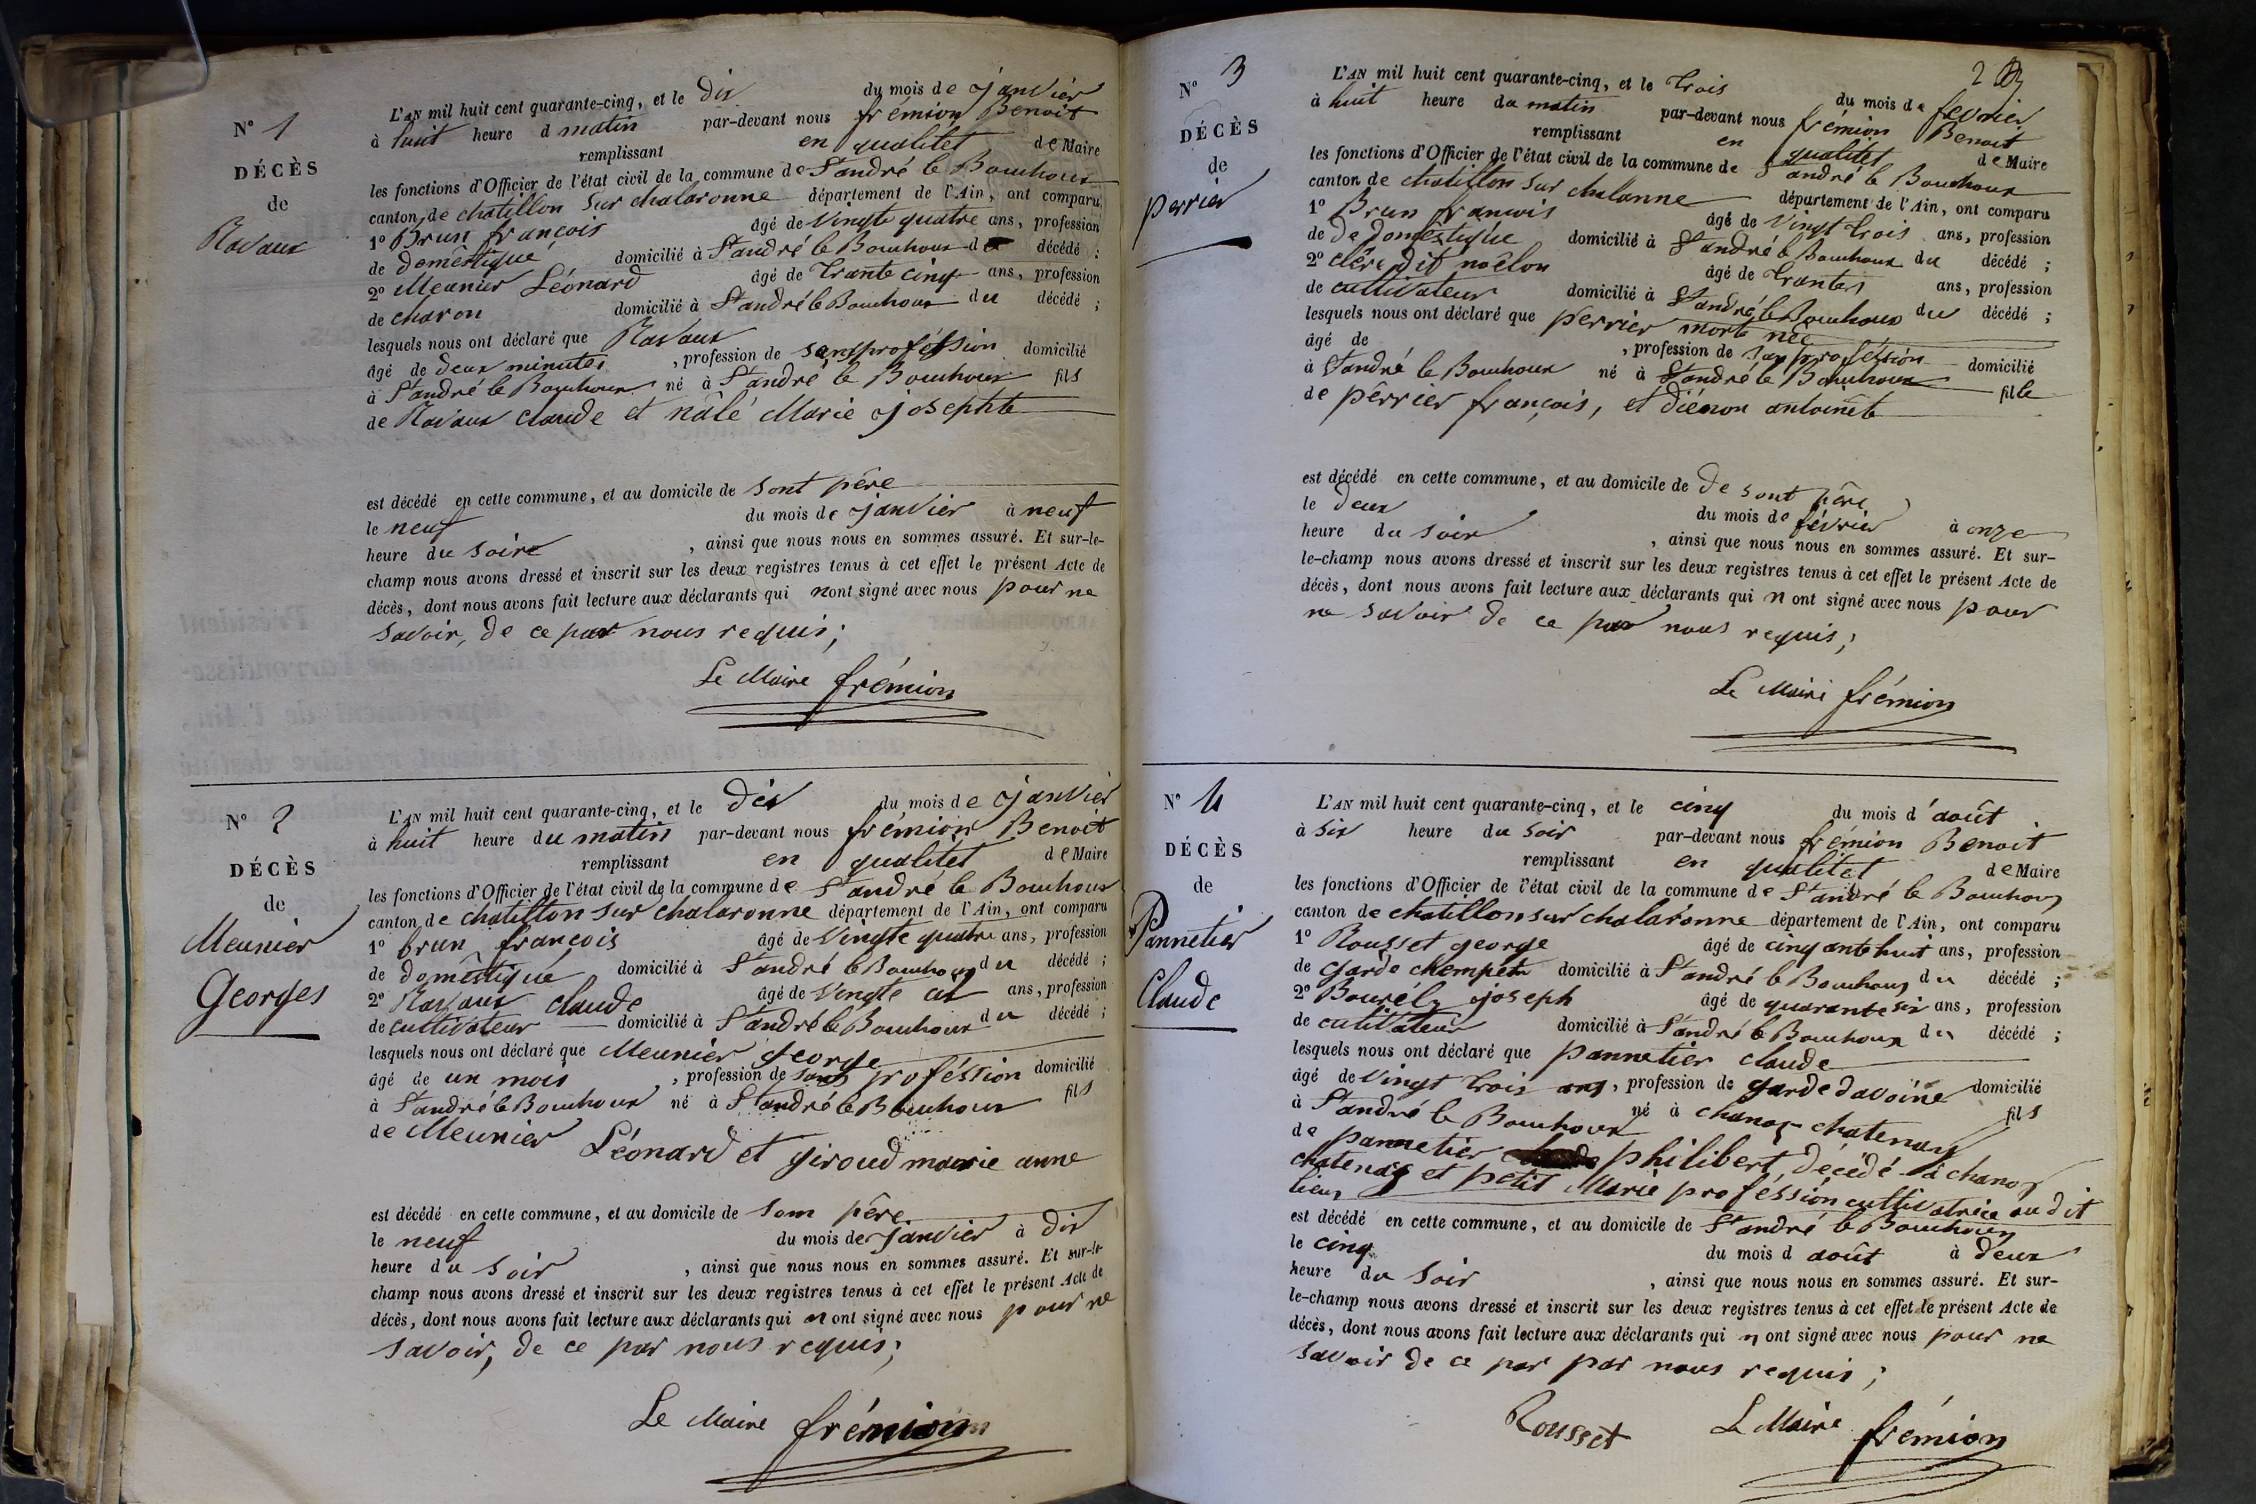 N° 1
DÉCÈS
de
Ravaux
L'AN mil huit cent quarante-cinq, et le dix du mois de janvier
à huit heure d matin par-devant nous frémion Benoit
remplissant en qualitet de Maire
les fonctions d'Officier de l'état civil de la commune de St andré le Bouchoux
canton de chatillon sur chalaronne département de l'Ain, ont comparu
1° Brun françois âgé de vingte quatre ans, profession
de domêstique domicilié à St andré le Bouchoux du décédé ;
2° Meunier Léonard âgé de trante cinq ans, profession
de charon domicilié à St andré le Bouchoux du décédé ;
lesquels nous ont déclaré que Ravaux
âgé de deux minutes , profession de sans proféssion domicilié
à St andré le Bouchoux né à St andré le Bouchoux fils
de Ravaux claude et nâlé Marie josephte
est décédé en cette commune, et au domicile de sont pêre
le neuf du mois de janvier à neuf
heure du soire , ainsi que nous nous en sommes assuré. Et sur-le-
champ nous avons dressé et inscrit sur les deux registres tenus à cet effet le présent Acte de
décès, dont nous avons fait lecture aux déclarants qui nont signé avec nous pour ne
savoir, de ce par nous requis;
Le Maire frémion
N° 2
DÉCÈS
de
Meunier
Georges
L'AN mil huit cent quarante-cinq, et le dix du mois de janvier
à huit heure du matin par-devant nous frémion Benoit
remplissant en qualitét de Maire
les fonctions d'Officier de l'état civil de la commune de St andré le Bouchoux
canton de chatillon sur chalaronne département de l'Ain, ont comparu
1° brun françois âgé de vingte quatre ans, profession
de domêstique domicilié à St andré le Bouchoux du décédé ;
2° Ravaux claude âgé de vingte ans, profession
de cultivateur domicilié à St andré le Bouchoux du décédé ;
lesquels nous ont déclaré que Meunier george
âgé de un mois , profession de sans proféssion domicilié
à St andré le Bouchoux né à St andré le Bouchoux fils
de Meunier Léonard et giroud marie anne
est décédé en cette commune, et au domicile de som pêre
le neuf du mois de janvier à dix
heure du soir , ainsi que nous nous en sommes assuré. Et sur-le-
champ nous avons dressé et inscrit sur les deux registres tenus à cet effet le présent Acte de
décès, dont nous avons fait lecture aux déclarants qui n ont signé avec nous pour ne
savoir, de ce par nous requis;
Le Maire frémion
N° 3
DÉCÈS
de
perrier
2
L'AN mil huit cent quarante-cinq, et le trois du mois de fevrier
à huit heure du matin par-devant nous frémion Benoit
remplissant en qualitet de Maire
les fonctions d'Officier de l'état civil de la commune de St andré le Bouchoux
canton de chatillon sur chalanne département de l'Ain, ont comparu
1° Brun francois âgé de vingt trois ans, profession
de de domestique domicilié à St andré le Bouchoux du décédé ;
2° clére dit noêlon âgé de trantes ans, profession
de cultivateur domicilié à St andré le Bouchoux du décédé ;
lesquels nous ont déclaré que perrier morte née
âgé de , profession de sans proféssion domicilié
à St andré le Bouchoux né à St andré le Bouchoux fille
de pêrrier françois, et diénon antoinêtte
est décédé en cette commune, et au domicile de de sont pêre
le deux du mois de février à onze
heure du soir , ainsi que nous nous en sommes assuré. Et sur-
le-champ nous avons dressé et inscrit sur les deux registres tenus à cet effet le présent Acte de
décès, dont nous avons fait lecture aux déclarants qui n ont signé avec nous pour
ne savoir de ce par nous requis;
Le Maire frémion
N° 4
DÉCÈS
de
Pannetier
Claude
L'AN mil huit cent quarante-cinq, et le cinq du mois d'août
à six heure du soir par-devant nous frémion Benoit
remplissant en qualitet de Maire
les fonctions d'Officier de l'état civil de la commune de St andré le Bouchoux
canton de chatillon sur chalaronne département de l'Ain, ont comparu
1° Rousset george âgé de cinqante huit ans, profession
de garde chempetre domicilié à St andré le Bouchoux du décédé ;
2° Bourély joseph âgé de quarante six ans, profession
de cultivateur domicilié à St andré le Bouchoux du décédé ;
lesquels nous ont déclaré que pannetier claude
âgé de vingt trois ans, profession de garde davoine domicilié
à St andré le Bouchoux né à chanoz chatenay fils
de pannetier philibert, décédé à chanoz
chatenay et petit Marie proféssion cultivatrice au dit
lieu
est décédé en cette commune, et au domicile de St andré le Bouchoux
le cinq du mois d août à deux
heure du soir , ainsi que nous nous en sommes assuré. Et sur-
le-champ nous avons dressé et inscrit sur les deux registres tenus à cet effet le présent Acte de
décès, dont nous avons fait lecture aux déclarants qui n ont signé avec nous pour ne
savoir de ce par par nous requis;
Rousset Le Maire frémion